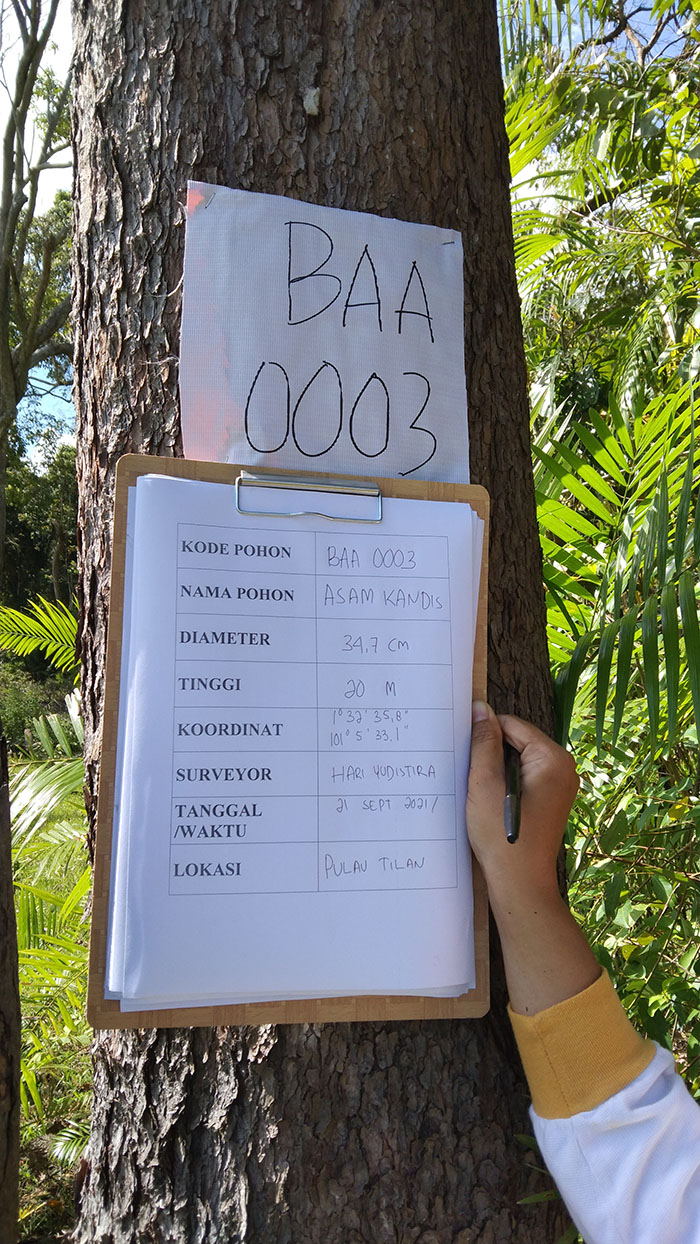 BAA
0003
KODE POHON BAA 0003
NAMA POHON ASAM KANDIS
DIAMETER 34,7 cm
TINGGI 20 M
KOORDINAT 1° 32' 35,8" 
101° 5' 33.1"
SURVEYOR HARI YUDISTIRA
TANGGAL 21 SEPT 2021/
/WAKTU
LOKASI PULAU TILAN